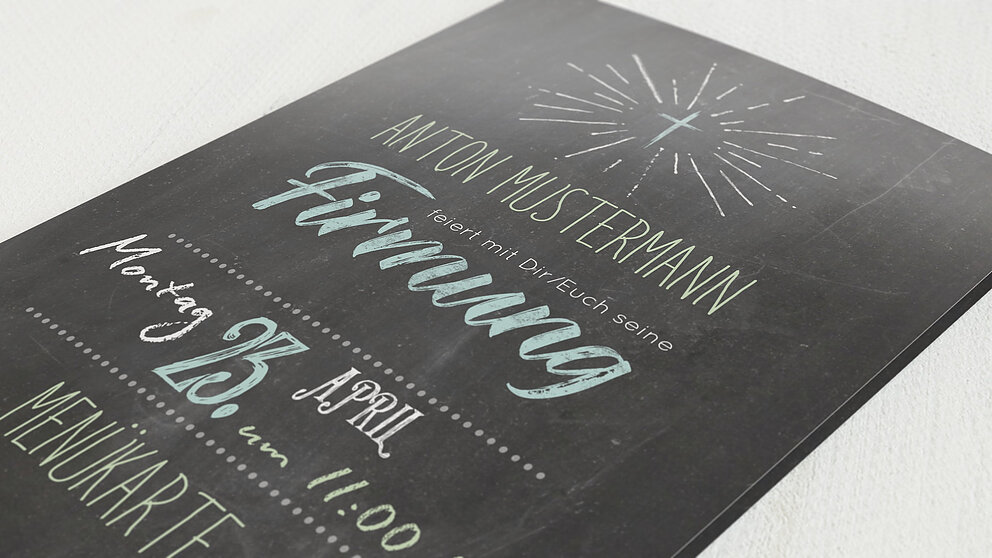 ANTON MUSTERMANN
feiert mit Dir/Euch seine
Firmung
Montag 23. APRIL
um 11:00
MENÜKARTE